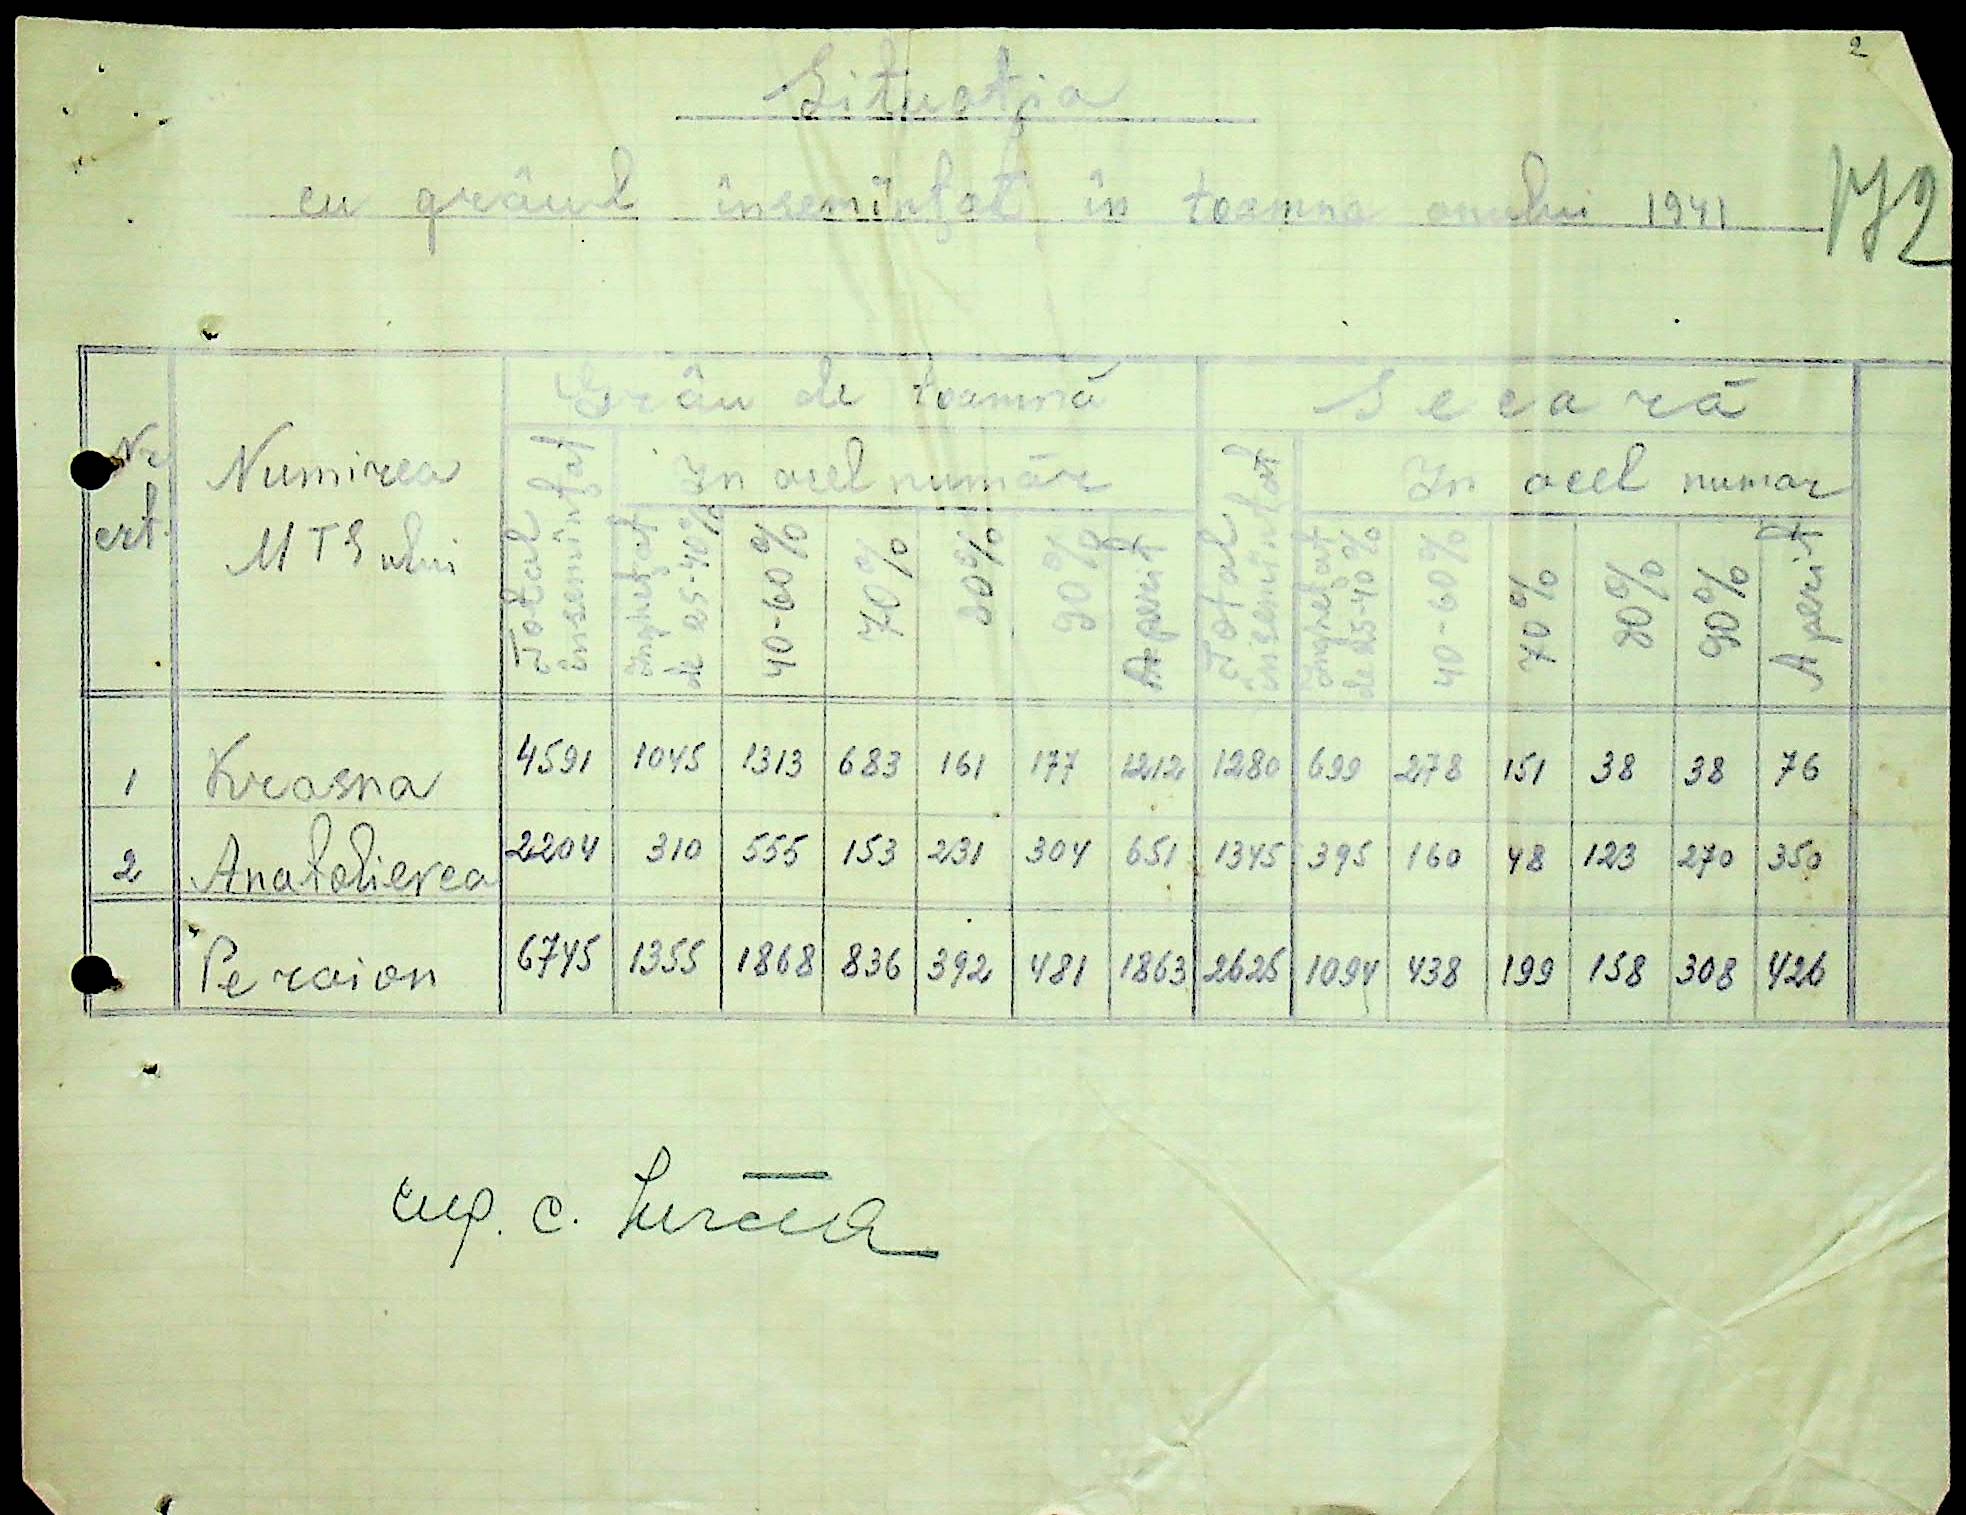 2
Situația
cu grâul însemințat în toamna anului 1941
172
Nr crt. Numirea MTS ului Grâu de toamnă Secară
Total însemințat In acel număr Total însemințat In acel numar
înghețat de 25-40% 40-60% 70% 80% 90% A perit înghețat de 25-40% 40-60% 70% 80% 90% A perit
1 Krasna 4591 1045 1313 683 161 177 1212 1280 699 278 151 38 38 76
2 Anatolievca 2204 310 555 153 231 304 651 1345 395 160 48 123 270 350
Pe raion 6745 1355 1868 836 392 481 1863 2625 1094 438 199 158 308 426
c.